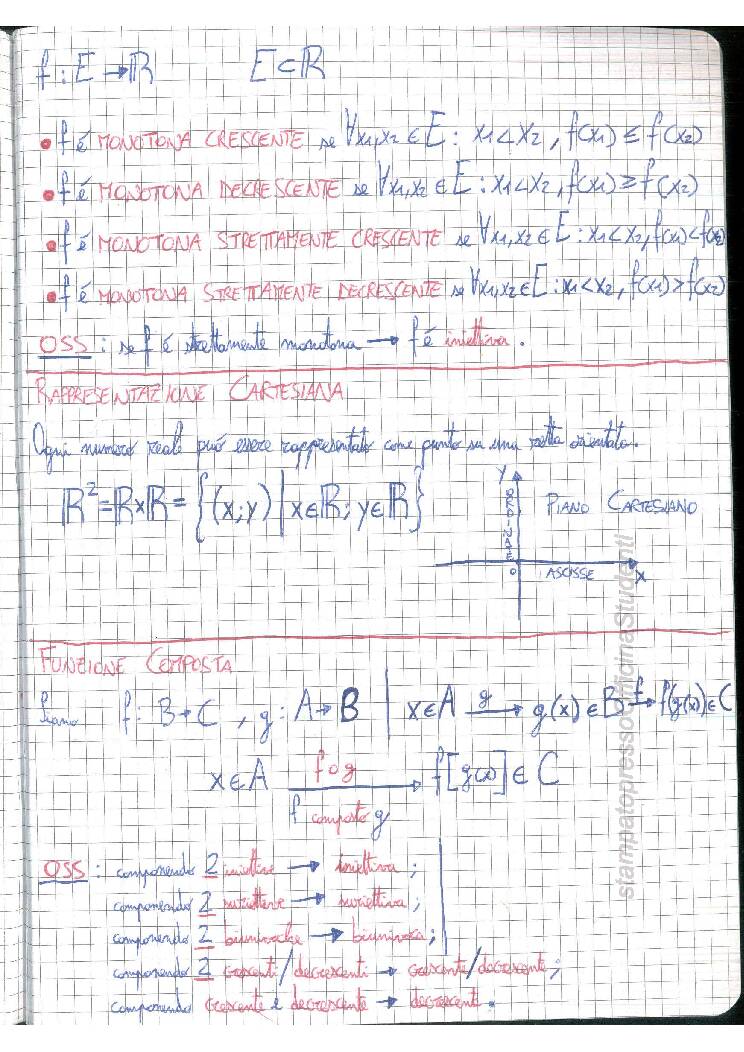 f : E → ℝ        E ⊂ ℝ
• f é MONOTONA CRESCENTE se ∀x₁,x₂ ∈ E : x₁<x₂ , f(x₁) ≤ f(x₂)
• f é MONOTONA DECRESCENTE se ∀x₁,x₂ ∈ E : x₁<x₂, f(x₁) ≥ f(x₂)
• f é MONOTONA STRETTAMENTE CRESCENTE se ∀x₁,x₂ ∈ E : x₁<x₂, f(x₁)<f(x₂)
• f é MONOTONA STRETTAMENTE DECRESCENTE se ∀x₁,x₂∈E : x₁<x₂, f(x₁)>f(x₂)
OSS : se f é strettamente monotona → f é iniettiva .
RAPPRESENTAZIONE CARTESIANA
Ogni numero reale può essere rappresentato come punto su una retta orientata.
ℝ² = ℝxℝ = {(x;y) | x∈ℝ; y∈ℝ}
Y
ORDINATE
PIANO CARTESIANO
0
ASCISSE
X
FUNZIONE COMPOSTA
Siano f : B→C , g : A→B | x∈A g→ g(x)∈B f→ f(g(x))∈C
x∈A f∘g→ f[g(x)] ∈ C
f composto g
OSS : componendo 2 iniettive → iniettiva ;
componendo 2 suriettive → suriettiva ;
componendo 2 biunivoche → biunivoca ;
componendo 2 crescenti/decrescenti → crescente/decrescente ;
componendo crescente e decrescente → decrescente .
stampatopressoOfficinaStudenti